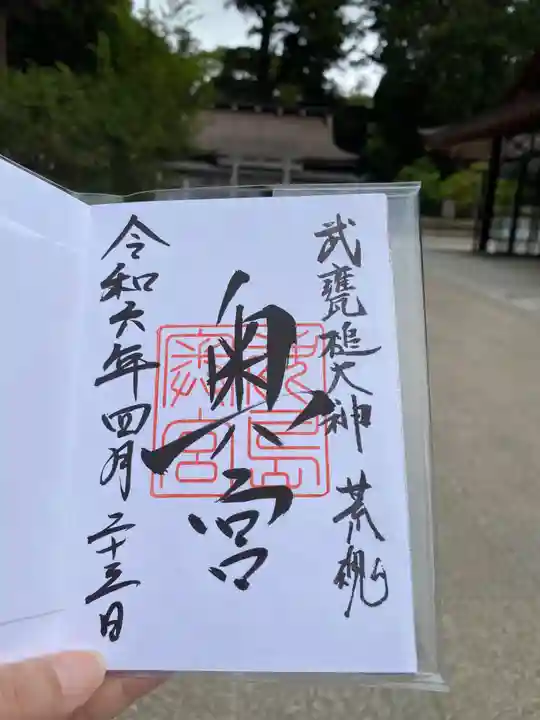 武甕槌大神 荒魂
奥宮
鹿島
奥宮
令和六年四月二十三日